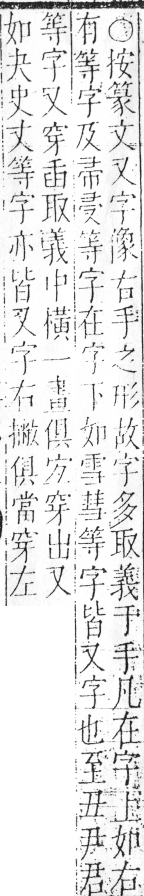 ○按篆文又字像右手之形故字多取義于手凡在字上如右
有等字及帚㕛等字在字下如雪彗等字皆又字也至丑尹君
等字又穿臿取義中橫一畫俱宜穿出又
如夬史丈等字亦皆又字右撇俱當穿左